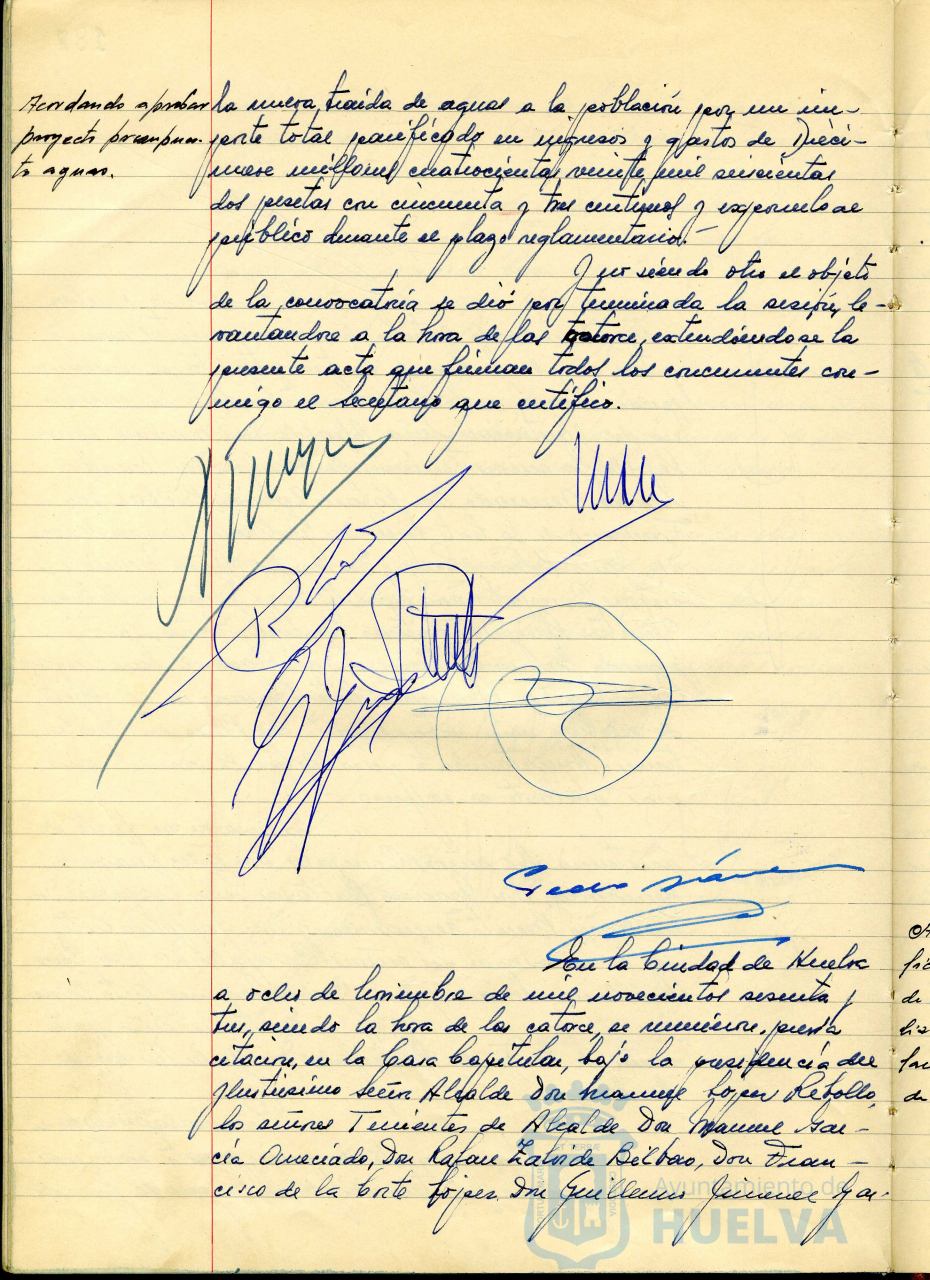 Acordando aprobar
proyecto presupues-
to aguas.
la nueva traída de aguas a la población por un im-
porte total panificado en ingresos y gastos de Dieci-
nueve millones cuatrocientas veinte mil seiscientas
dos pesetas con cincuenta y tres centimos y exponerlo al
público durante el plazo reglamentario.-
Y no siendo otro el objeto
de la convocatoria se dió por terminada la sesión, le-
vantandose a la hora de las catorce, extendiéndose la
presente acta que firman todos los concurrentes con-
migo el Secretario que certifico.
En la Ciudad de Huelva
a ocho de Noviembre de mil novecientos sesenta y
tres, siendo la hora de las catorce, se reunieron, previa
citación, en la Casa Capitular, bajo la presidencia del
Ilustrisimo Señor Alcalde Don Manuel López Rebollo,
los señores Tenientes de Alcalde Don Manuel Gar-
cía Don Rafael Zalvide Bilbao, Don Fran-
cisco de la Corte López, Don Guillermo Jimenez Gar-
Ayuntamiento de
HUELVA